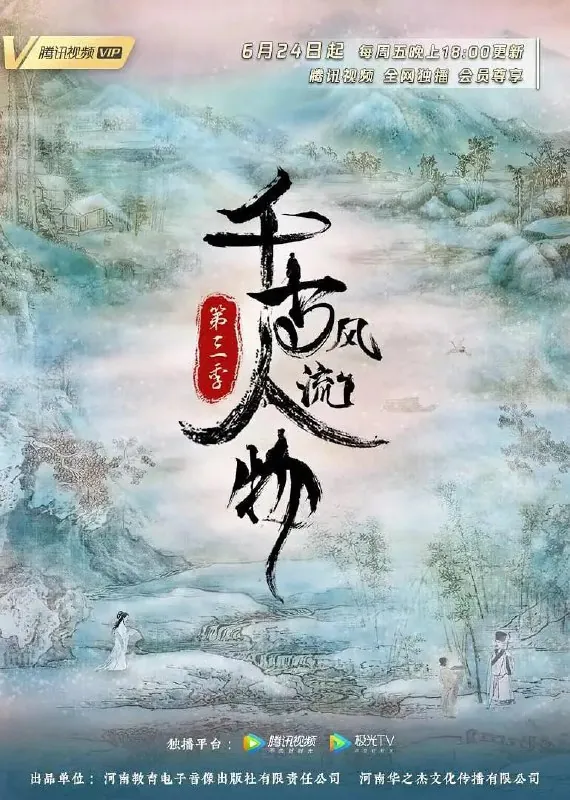 腾讯视频 VIP
6月24日起 每周五晚上18:00更新
腾讯视频 全网独播 会员尊享
千古风流人物
第三季
独播平台： 腾讯视频 极光TV
出品单位：河南教育电子音像出版社有限责任公司 河南华之杰文化传播有限公司